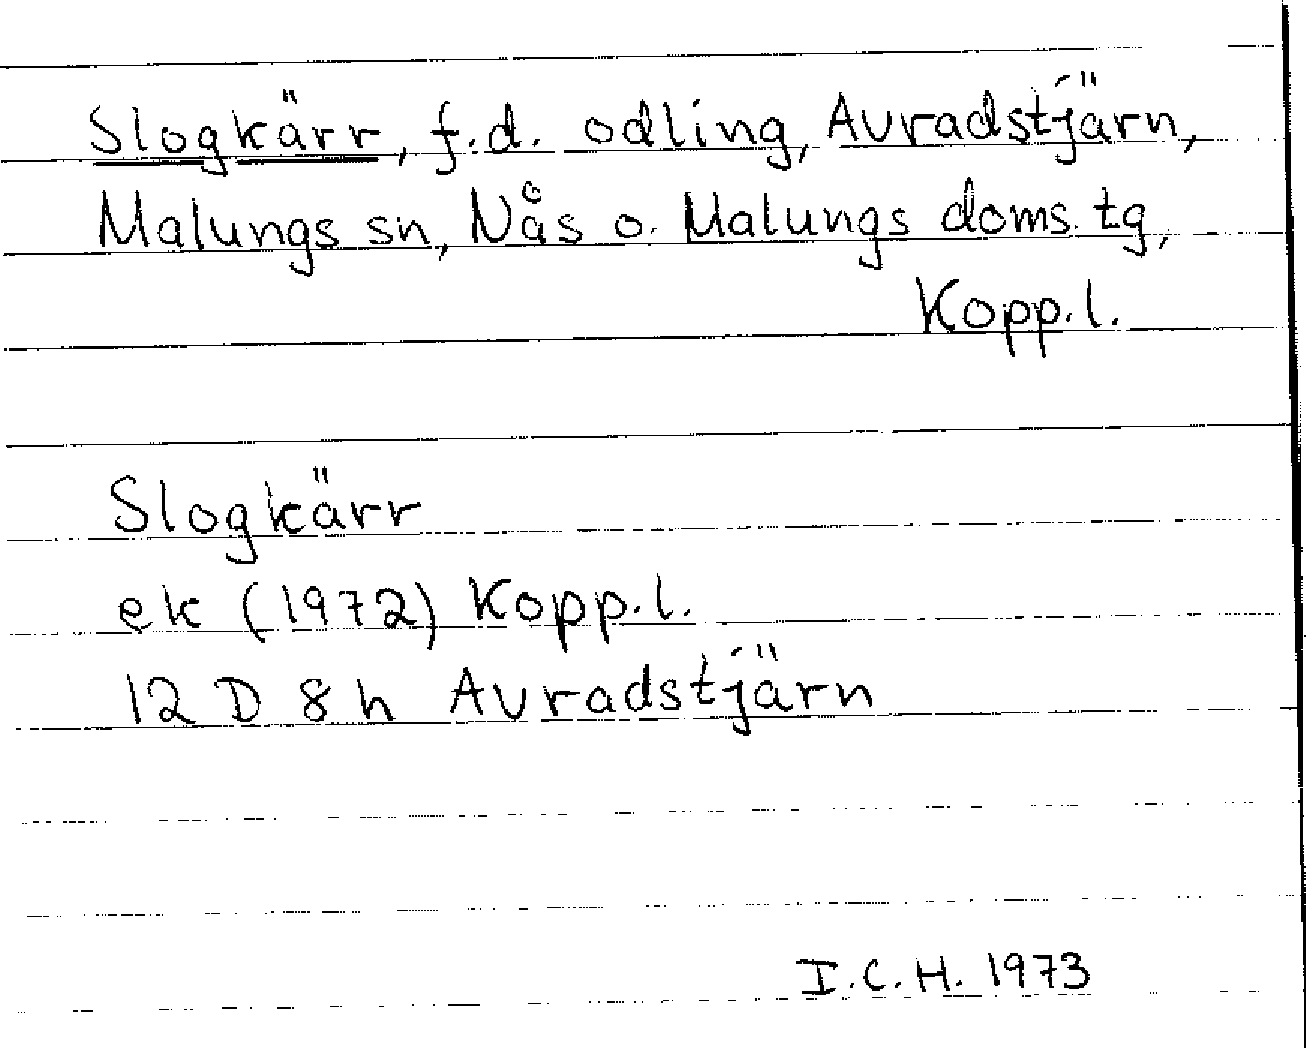 Slogkärr, f.d. odling, Avradstjärn,
Malungs sn, Nås o. Malungs doms. tg,
Kopp.l.
Slogkärr
ek (1972) Kopp.l.
12 D 8 h Avradstjärn
I.C.H. 1973